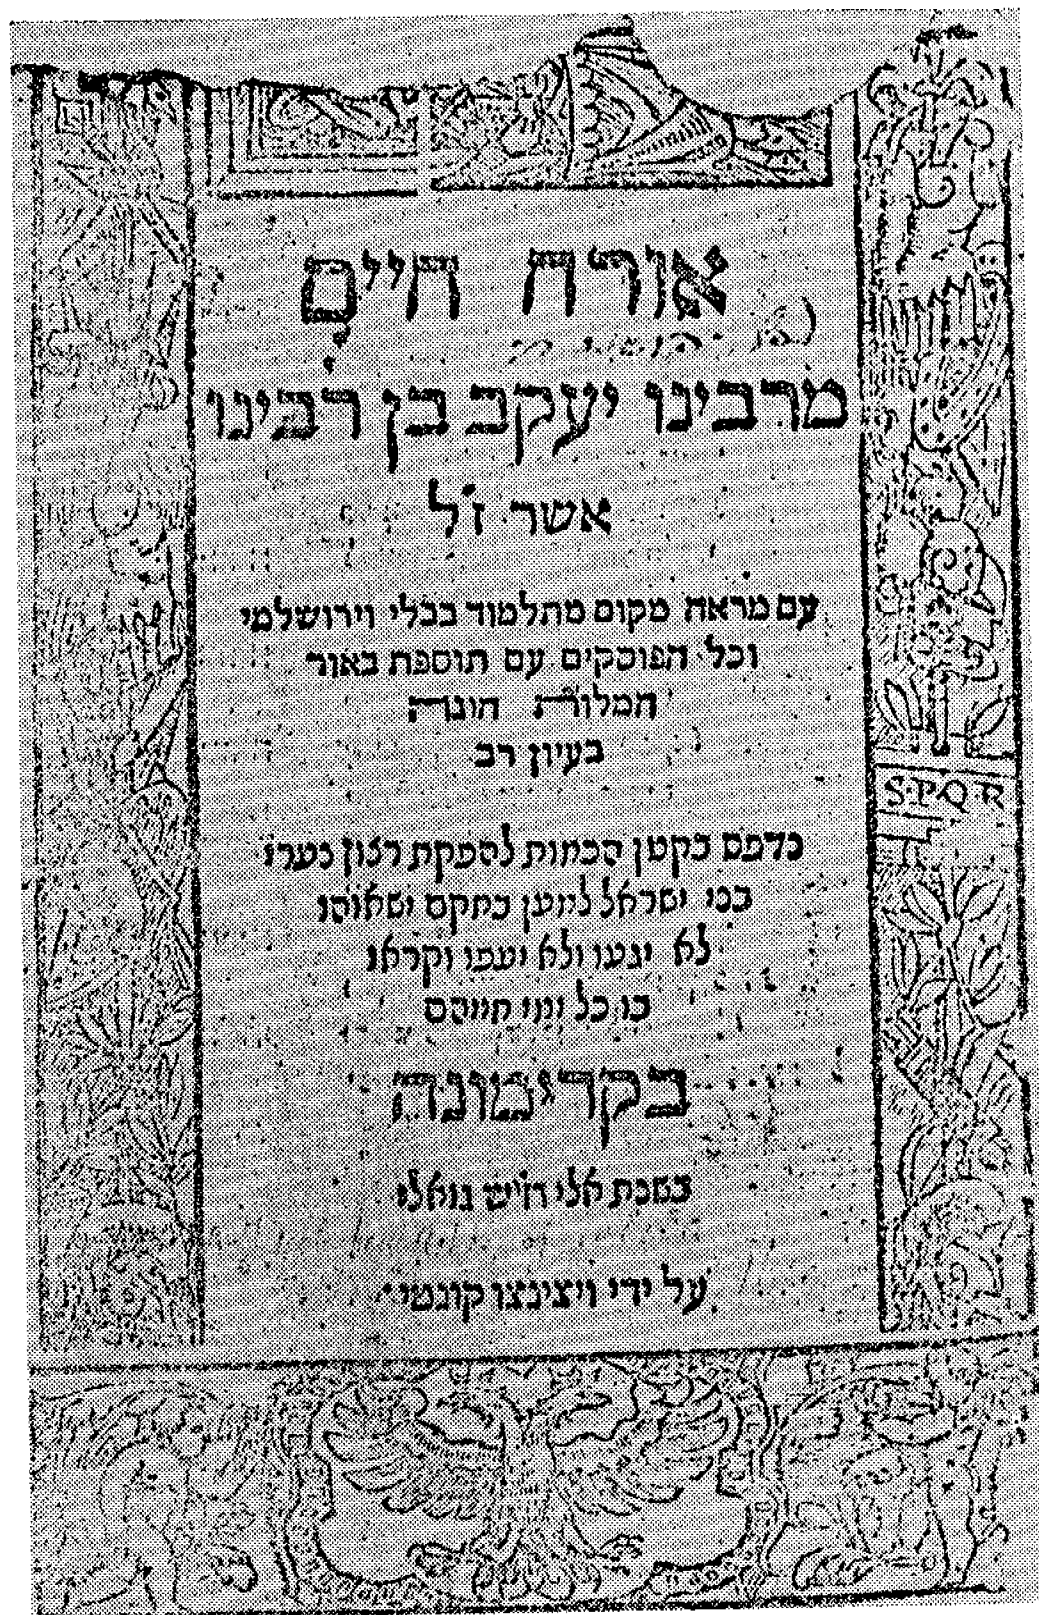 אורח חיים
מרבינו יעקב בן רבינו
אשר ז"ל
עם מראה מקום מתלמוד בבלי וירושלמי
וכל הפוסקים עם תוספת באור
המלות הוגה
בעיון רב
נדפס בקטן הכמות להפקת רצון נערי
בני ישראל למען במקום ישאוהו
לא יגעו ולא יעפו וקראו
בו כל ימי חייהם
בקרימונה
בשנת אלי חיש גואלי
על ידי ויצינצו קונטי
S·P·Q·R